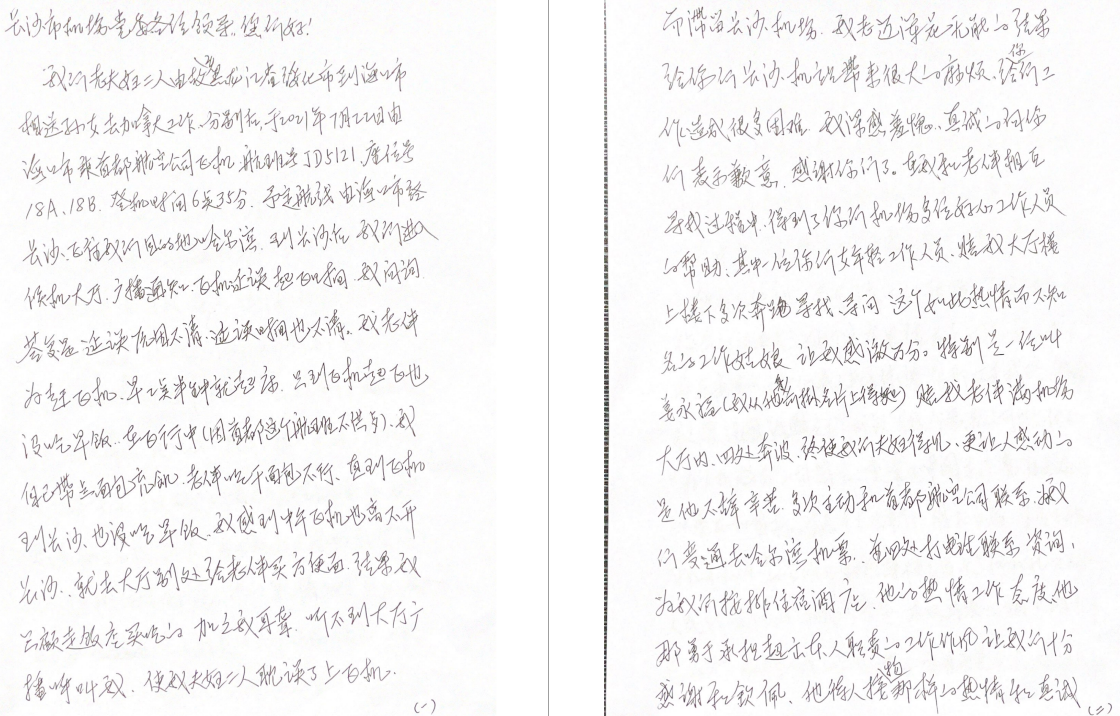 长沙市机场党委各位领导，您们好！
我们老夫妇二人由故黑龙江省绥化市到海口市
相送孙女去加拿大工作、分别后，于2021年7月22日由
海口市乘首都航空公司飞机 航班号JD5121，座位号
18A、18B. 登机时间6点35分. 予定航线 由海口市经
长沙、飞往我们目的地哈尔滨. 到长沙后 我们进入
候机大厅. 广播通知. 飞机延误起飞时间. 我问询
答复是 延误原因不清、延误时间也不清. 我老伴
为赶飞机. 早 点半钟就起床. 只到飞机起飞也
没吃早饭. 在飞行中(因首都这个航班不供 ). 我
自己带点面包充饥. 老伴吃干面包不行、直到飞机
到长沙、也没吃早饭. 我感到中午飞机也离不开
长沙. 就去大厅别处给老伴买方便面. 结果我
只顾走饭店买吃的 加之我耳聋. 听不到大厅广
播呼叫我. 使我夫妇二人耽误了上飞机.
(一)
而滞留长沙机场. 我老迈浑 无能的结果
给你们长沙机场带来很大的麻烦、给你们工
作造成很多困难. 我深感羞愧. 真诚的向你
们表示歉意. 感谢你们了。在我和老伴相互
寻找过程中. 得到了你们机场多位好的工作人员
的帮助、其中一位你们支年轻工作人员、陪我大厅楼
上楼下多次奔跑寻找、寻问 这个如此热情而不知
名的工作姑娘 让我感激万分。特别是一位叫
姜永福(我从他的 挂名片上得知) 陪我老伴满机场
大厅内、四处奔波. 终使我们夫妇得见. 更让人感动的
是他不辞辛苦. 多次主动和首都航空公司联系. 为我
们变通去哈尔滨机票. 并四处打电话联系 咨询、
为我们按排住宿酒店. 他的热情工作态度、他
那勇于承担超出本人职责的工作作风 让我们十分
感谢和钦佩、他待人接物那样的热情和真诚
(二)